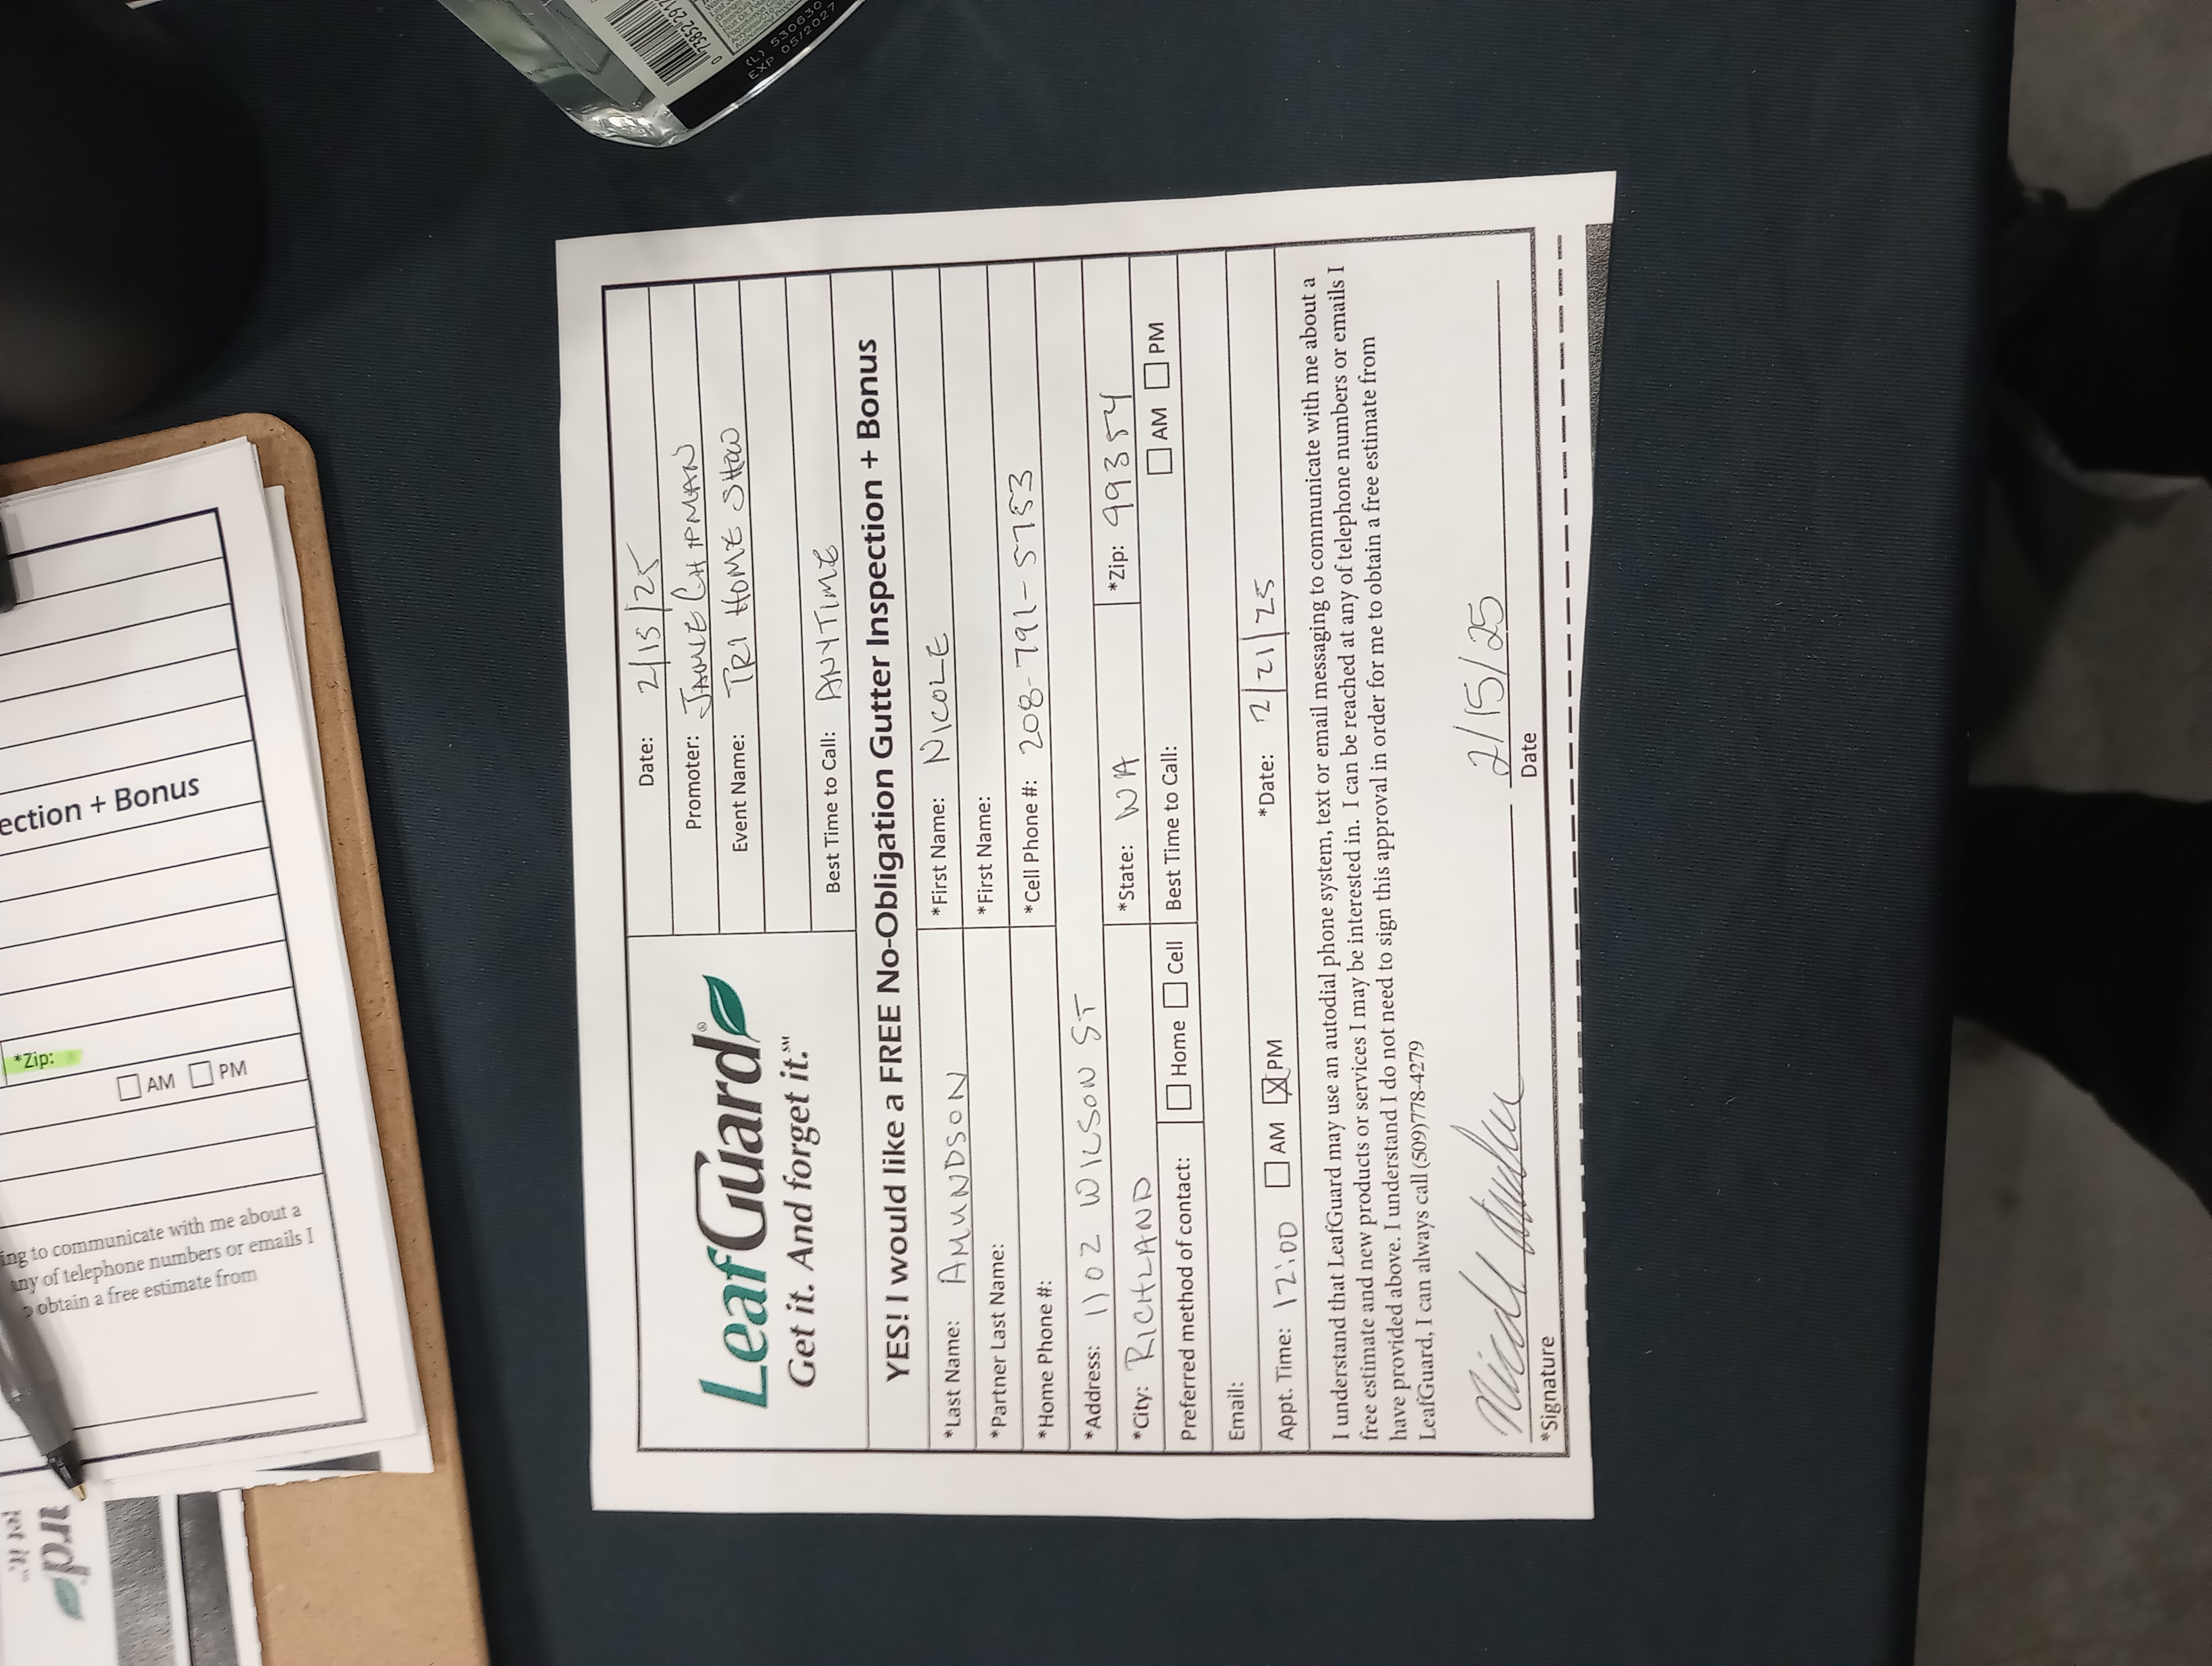 *Zip:
AM PM
ection + Bonus
ing to communicate with me about a
any of telephone numbers or emails I
obtain a free estimate from
LeafGuard®
Get it. And forget it.℠
Date: 2/15/25
Promoter: JAMIE CHIPMAN
Event Name: TRI HOME SHOW
Best Time to Call: ANYTIME
YES! I would like a FREE No-Obligation Gutter Inspection + Bonus
*Last Name: AMUNDSON *First Name: NICOLE
*Partner Last Name: *First Name:
*Home Phone #: *Cell Phone #: 208-791-5753
*Address: 1102 WILSON ST
*City: RICHLAND *State: WA *Zip: 99354
Preferred method of contact: Home Cell Best Time to Call: AM PM
Email:
Appt. Time: 12:00 AM PM *Date: 2/21/25
I understand that LeafGuard may use an autodial phone system, text or email messaging to communicate with me about a
free estimate and new products or services I may be interested in. I can be reached at any of telephone numbers or emails I
have provided above. I understand I do not need to sign this approval in order for me to obtain a free estimate from
LeafGuard, I can always call (509)778-4279
Nicole 2/15/25
*Signature Date
EXP 05/2027